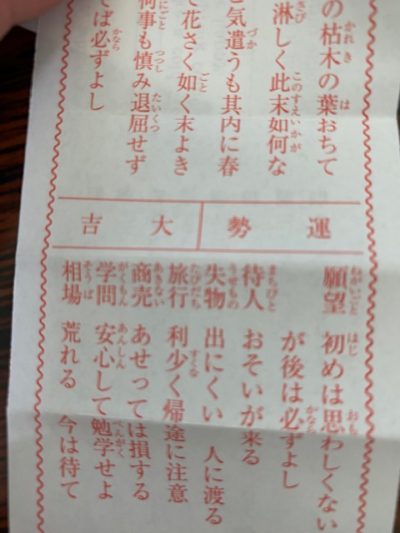 の枯木の葉おちて
淋しく此末如何な
気遣うも其内に春
て花さく如く末よき
何事も慎み退屈せず
ば必ずよし
運勢
大吉
願望 初めは思わしくない
が後は必ずよし
待人 おそいが来る
失物 出にくい 人に渡る
旅行 利少く帰途に注意
商売 あせっては損する
学問 安心して勉学せよ
相場 荒れる 今は待て